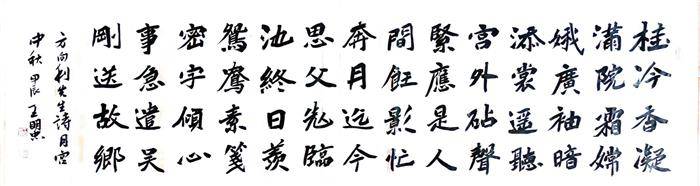 桂冷香凝
滿院霜嫦
娥廣袖暗
添裳遥聽
宫外砧聲
緊應是人
間飪影忙
奔月迄今
思父老臨
池終日羨
鴛鴦素箋
密字傾心
事急遣吴
剛送故鄉
方向利先生詩月宫
中秋 甲辰 王明